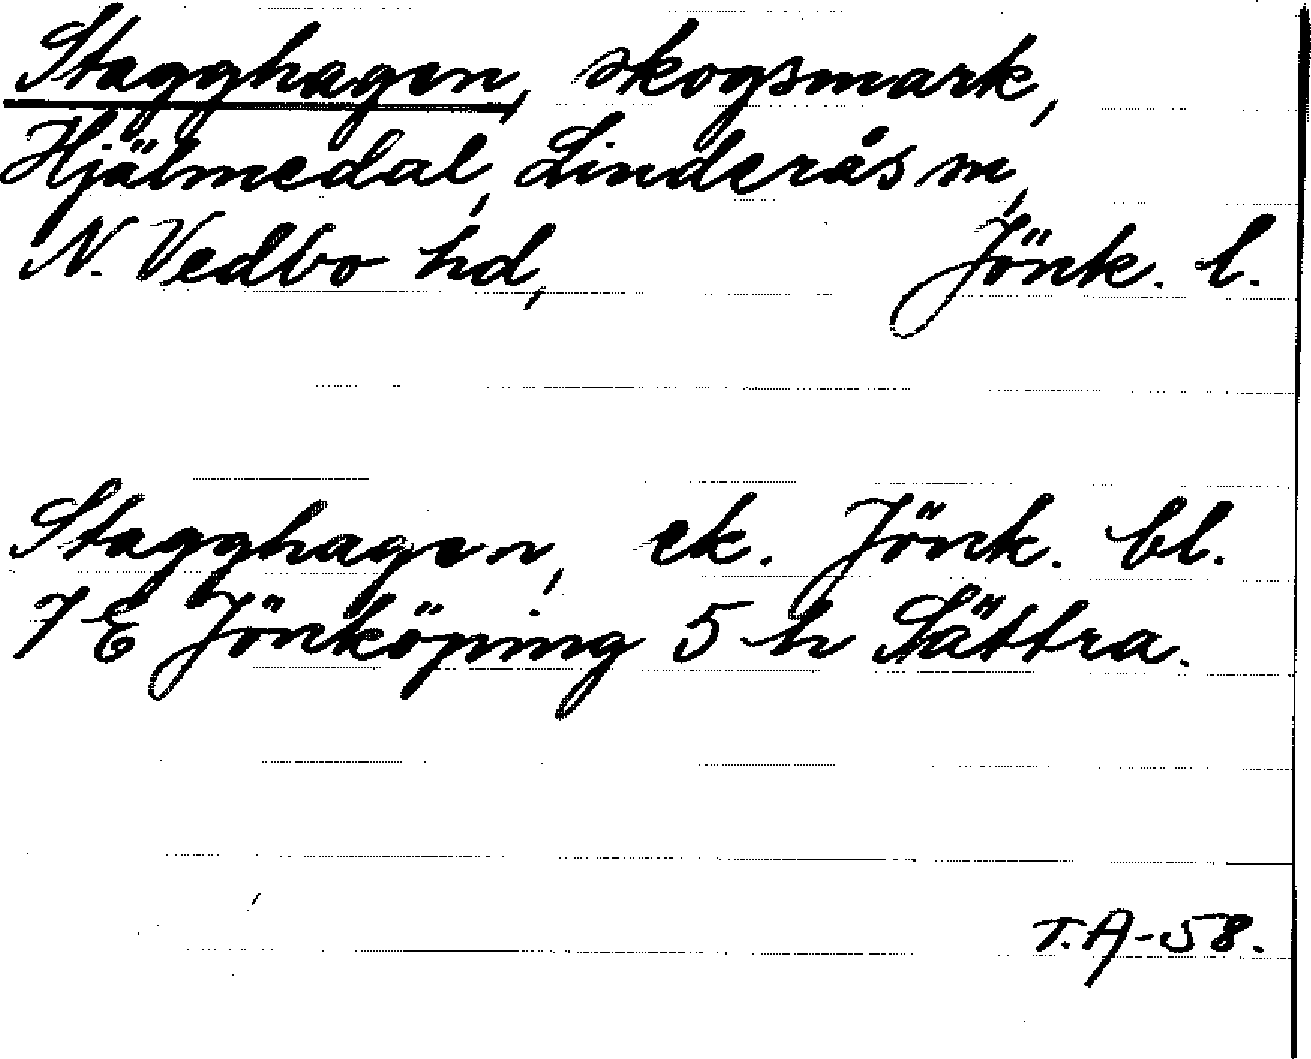 Stagghagen, skogsmark,
Hjälmedal, Linderås sn,
N. Vedbo hd, Jönk. l.
Stagghagen, ek. Jönk. bl.
7 E Jönköping 5 h Sättra.
T.A-58.